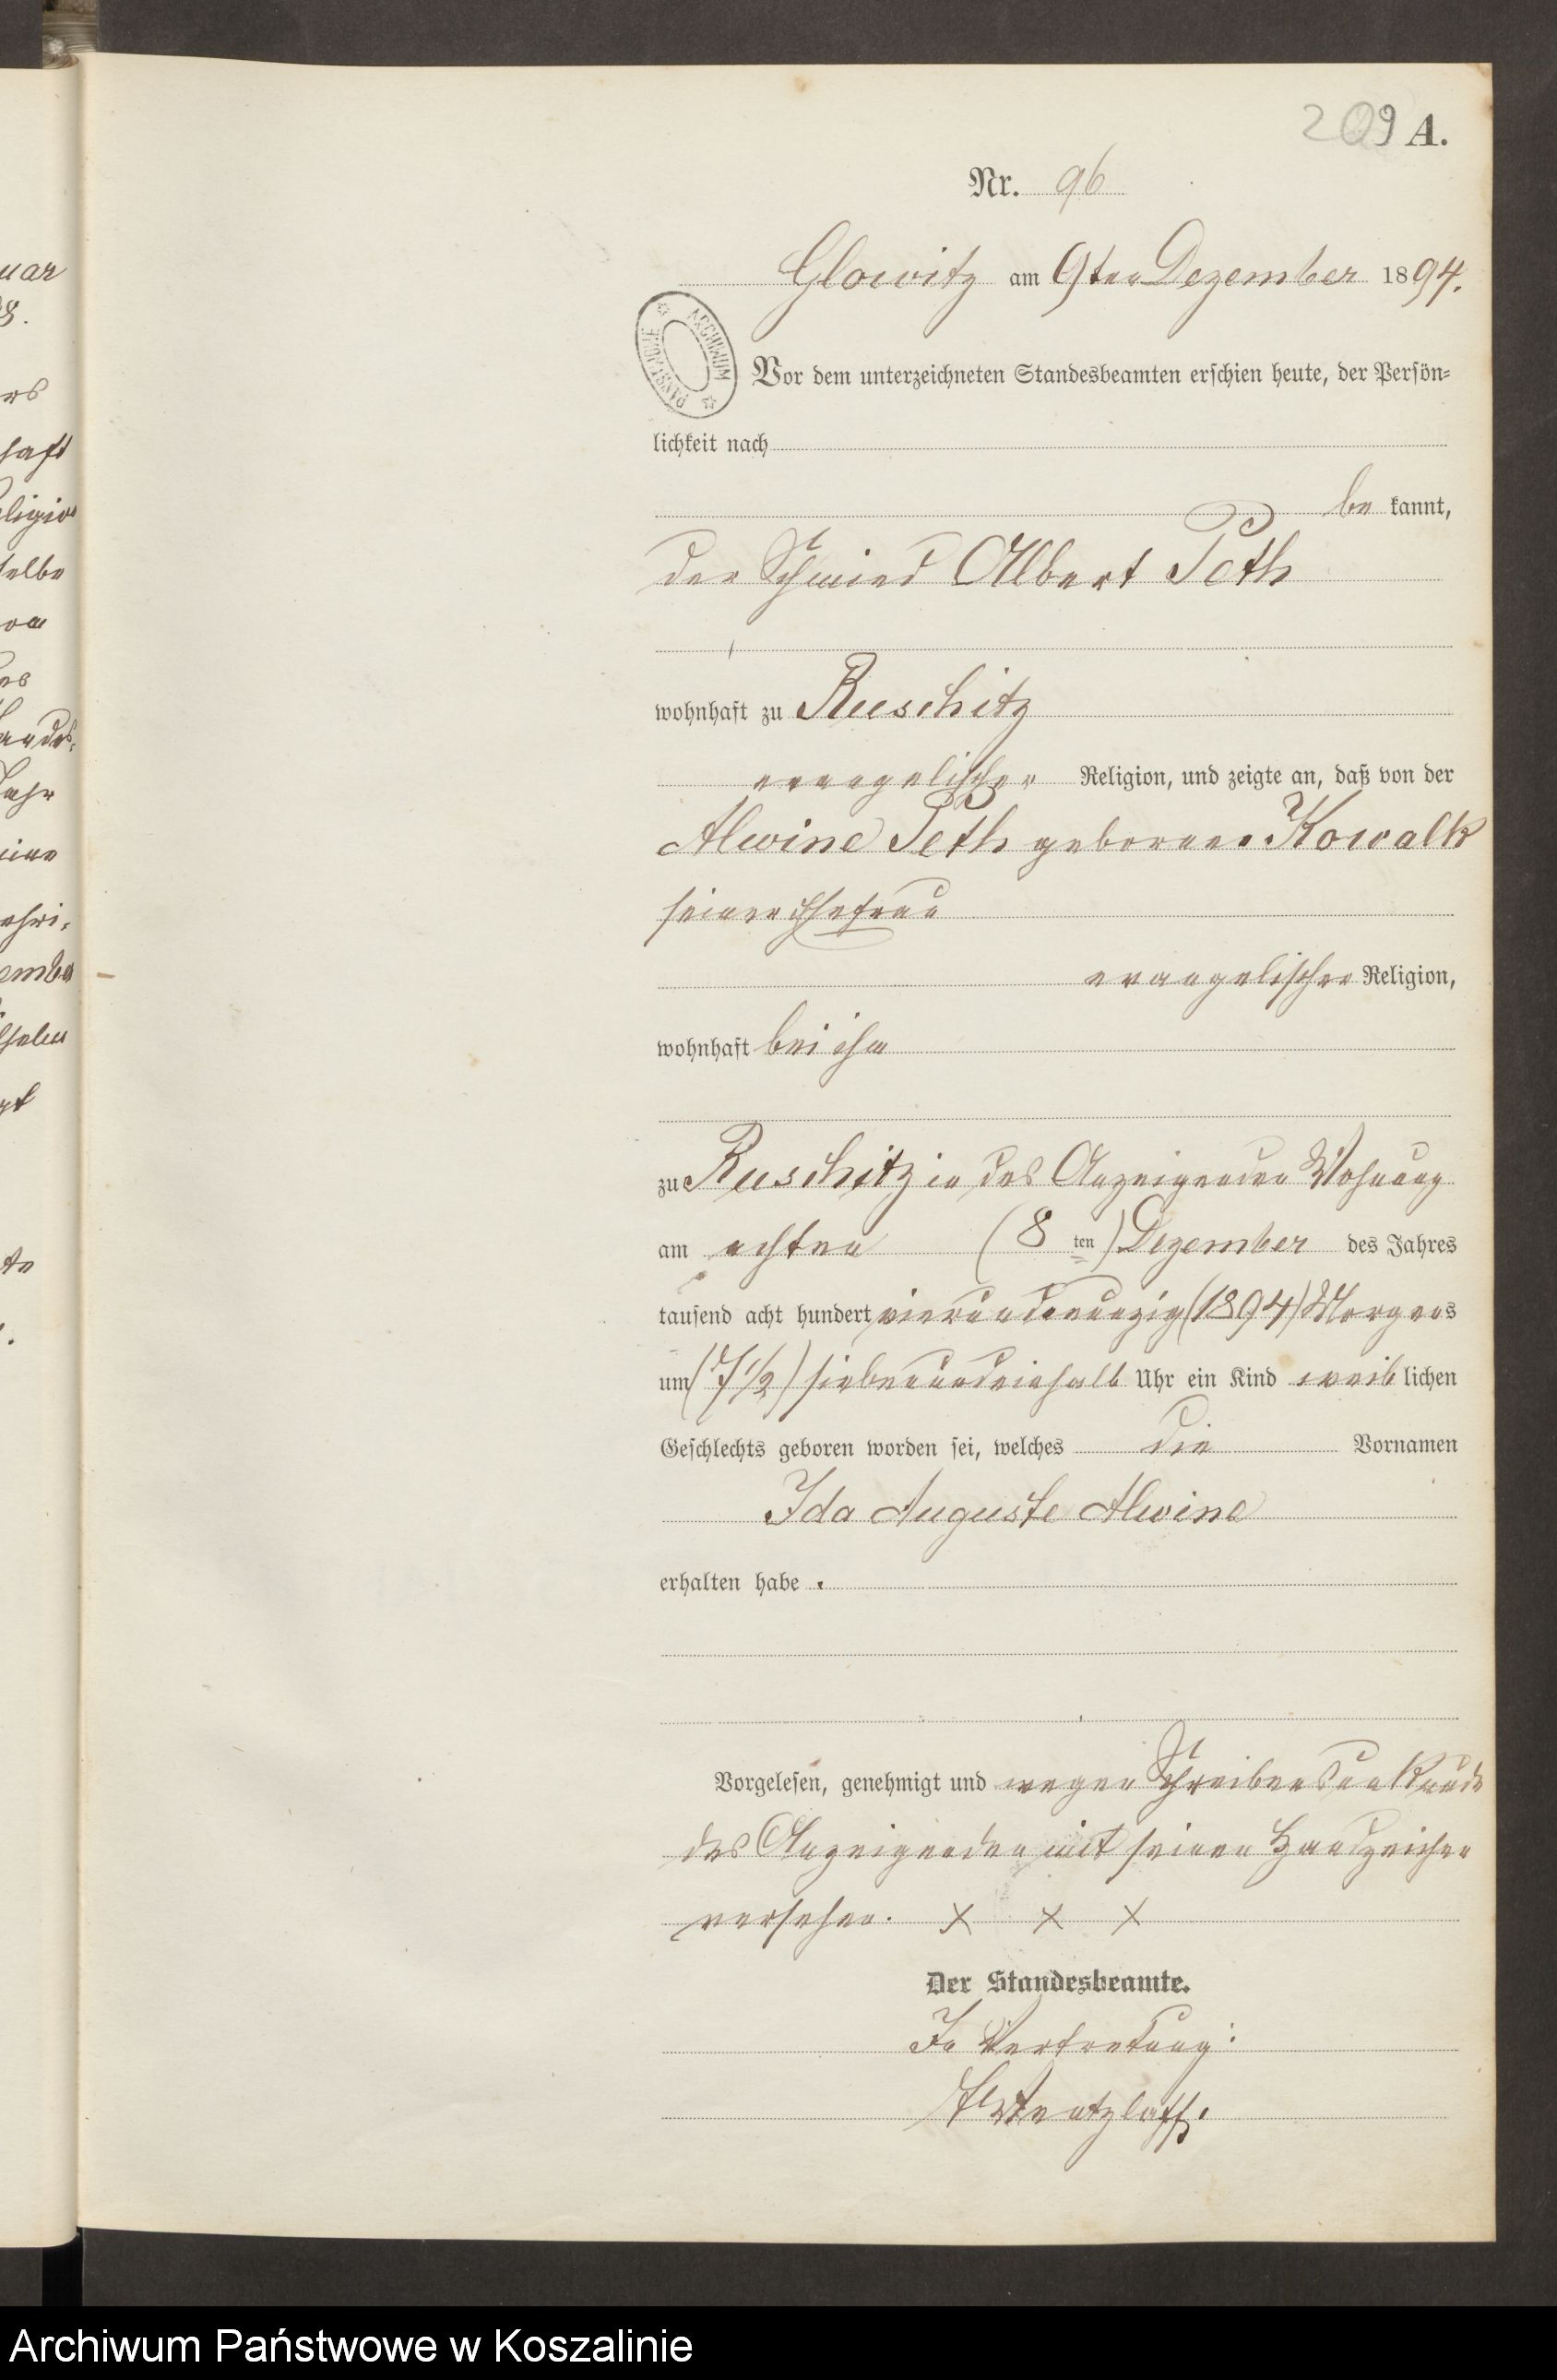 209 A.
Nr. 96
Glowitz am 9ten Dezember 1894.
ARCHIWUM PAŃSTWOWE
Vor dem unterzeichneten Standesbeamten erschien heute, der Persön=
lichkeit nach
be kannt,
der Schmied Albert Peth
wohnhaft zu Ruschitz
evangelischer Religion, und zeigte an, daß von der
Alwine Peth geborene Kowalk
seiner Ehefrau
evangelischer Religion,
wohnhaft bei ihm
zu Ruschitz in des Anzeigenden Wohnung
am achten (8 ten) Dezember des Jahres
tausend acht hundert vierundneunzig (1894) Morgens
um (7 1/2) siebenundeinhalb Uhr ein Kind weib lichen
Geschlechts geboren worden sei, welches die Vornamen
Ida Auguste Alwine
erhalten habe .
Vorgelesen, genehmigt und wegen Schreibensunkunde
des Anzeigenden mit seinen Handzeichen
versehen. x x x
Der Standesbeamte.
In Vertretung:
Wentzlaff.
uar
8.
es
haft
eligio
selbe
von
es
Jahr
eine
ehri,
embe
te
Archiwum Państwowe w Koszalinie